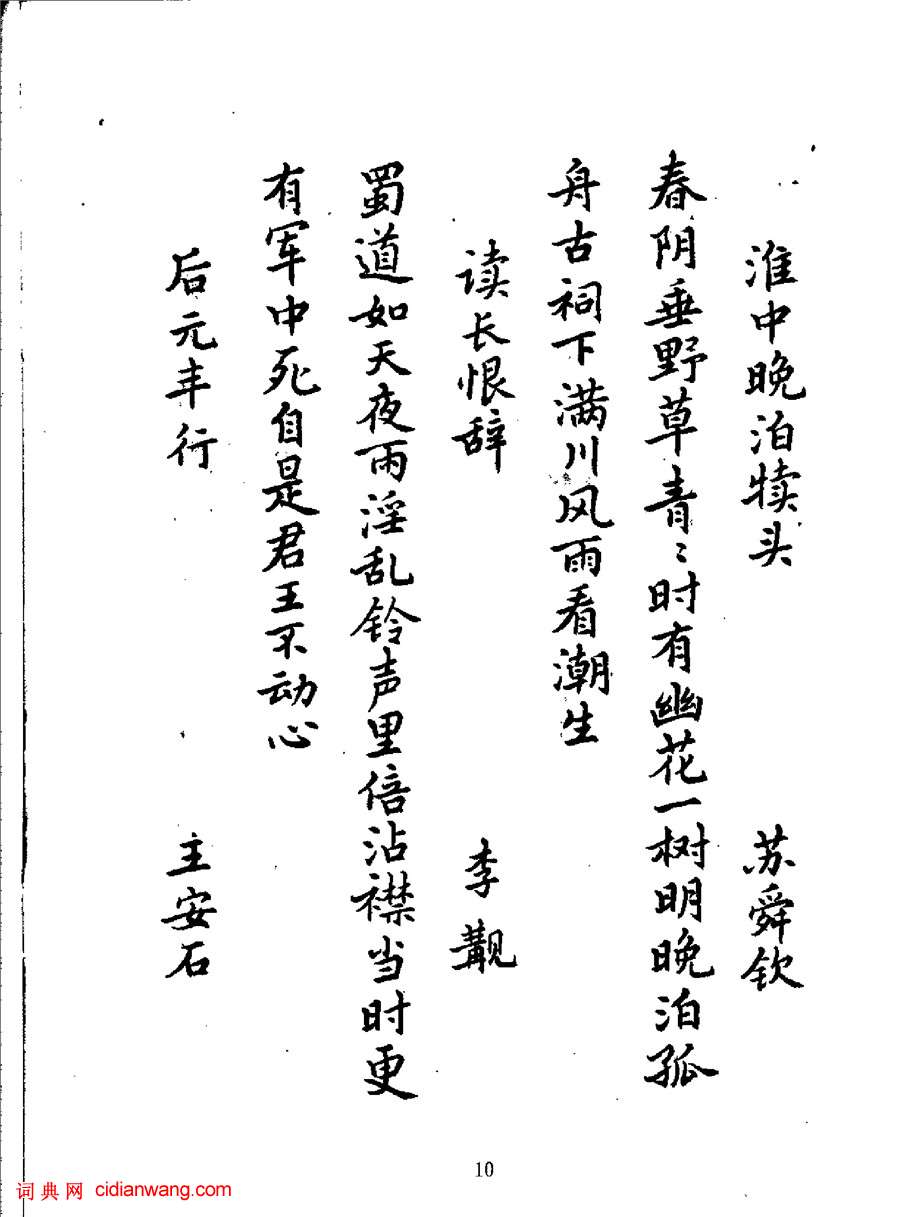 淮中晚泊犊头 苏舜钦
春阴垂野草青〻时有幽花一树明晚泊孤
舟古祠下满川风雨看潮生
读长恨辞 李觏
蜀道如天夜雨淫乱铃声里倍沾襟当时更
有军中死自是君王不动心
后元丰行 王安石
10
词典网 cidianwang.com